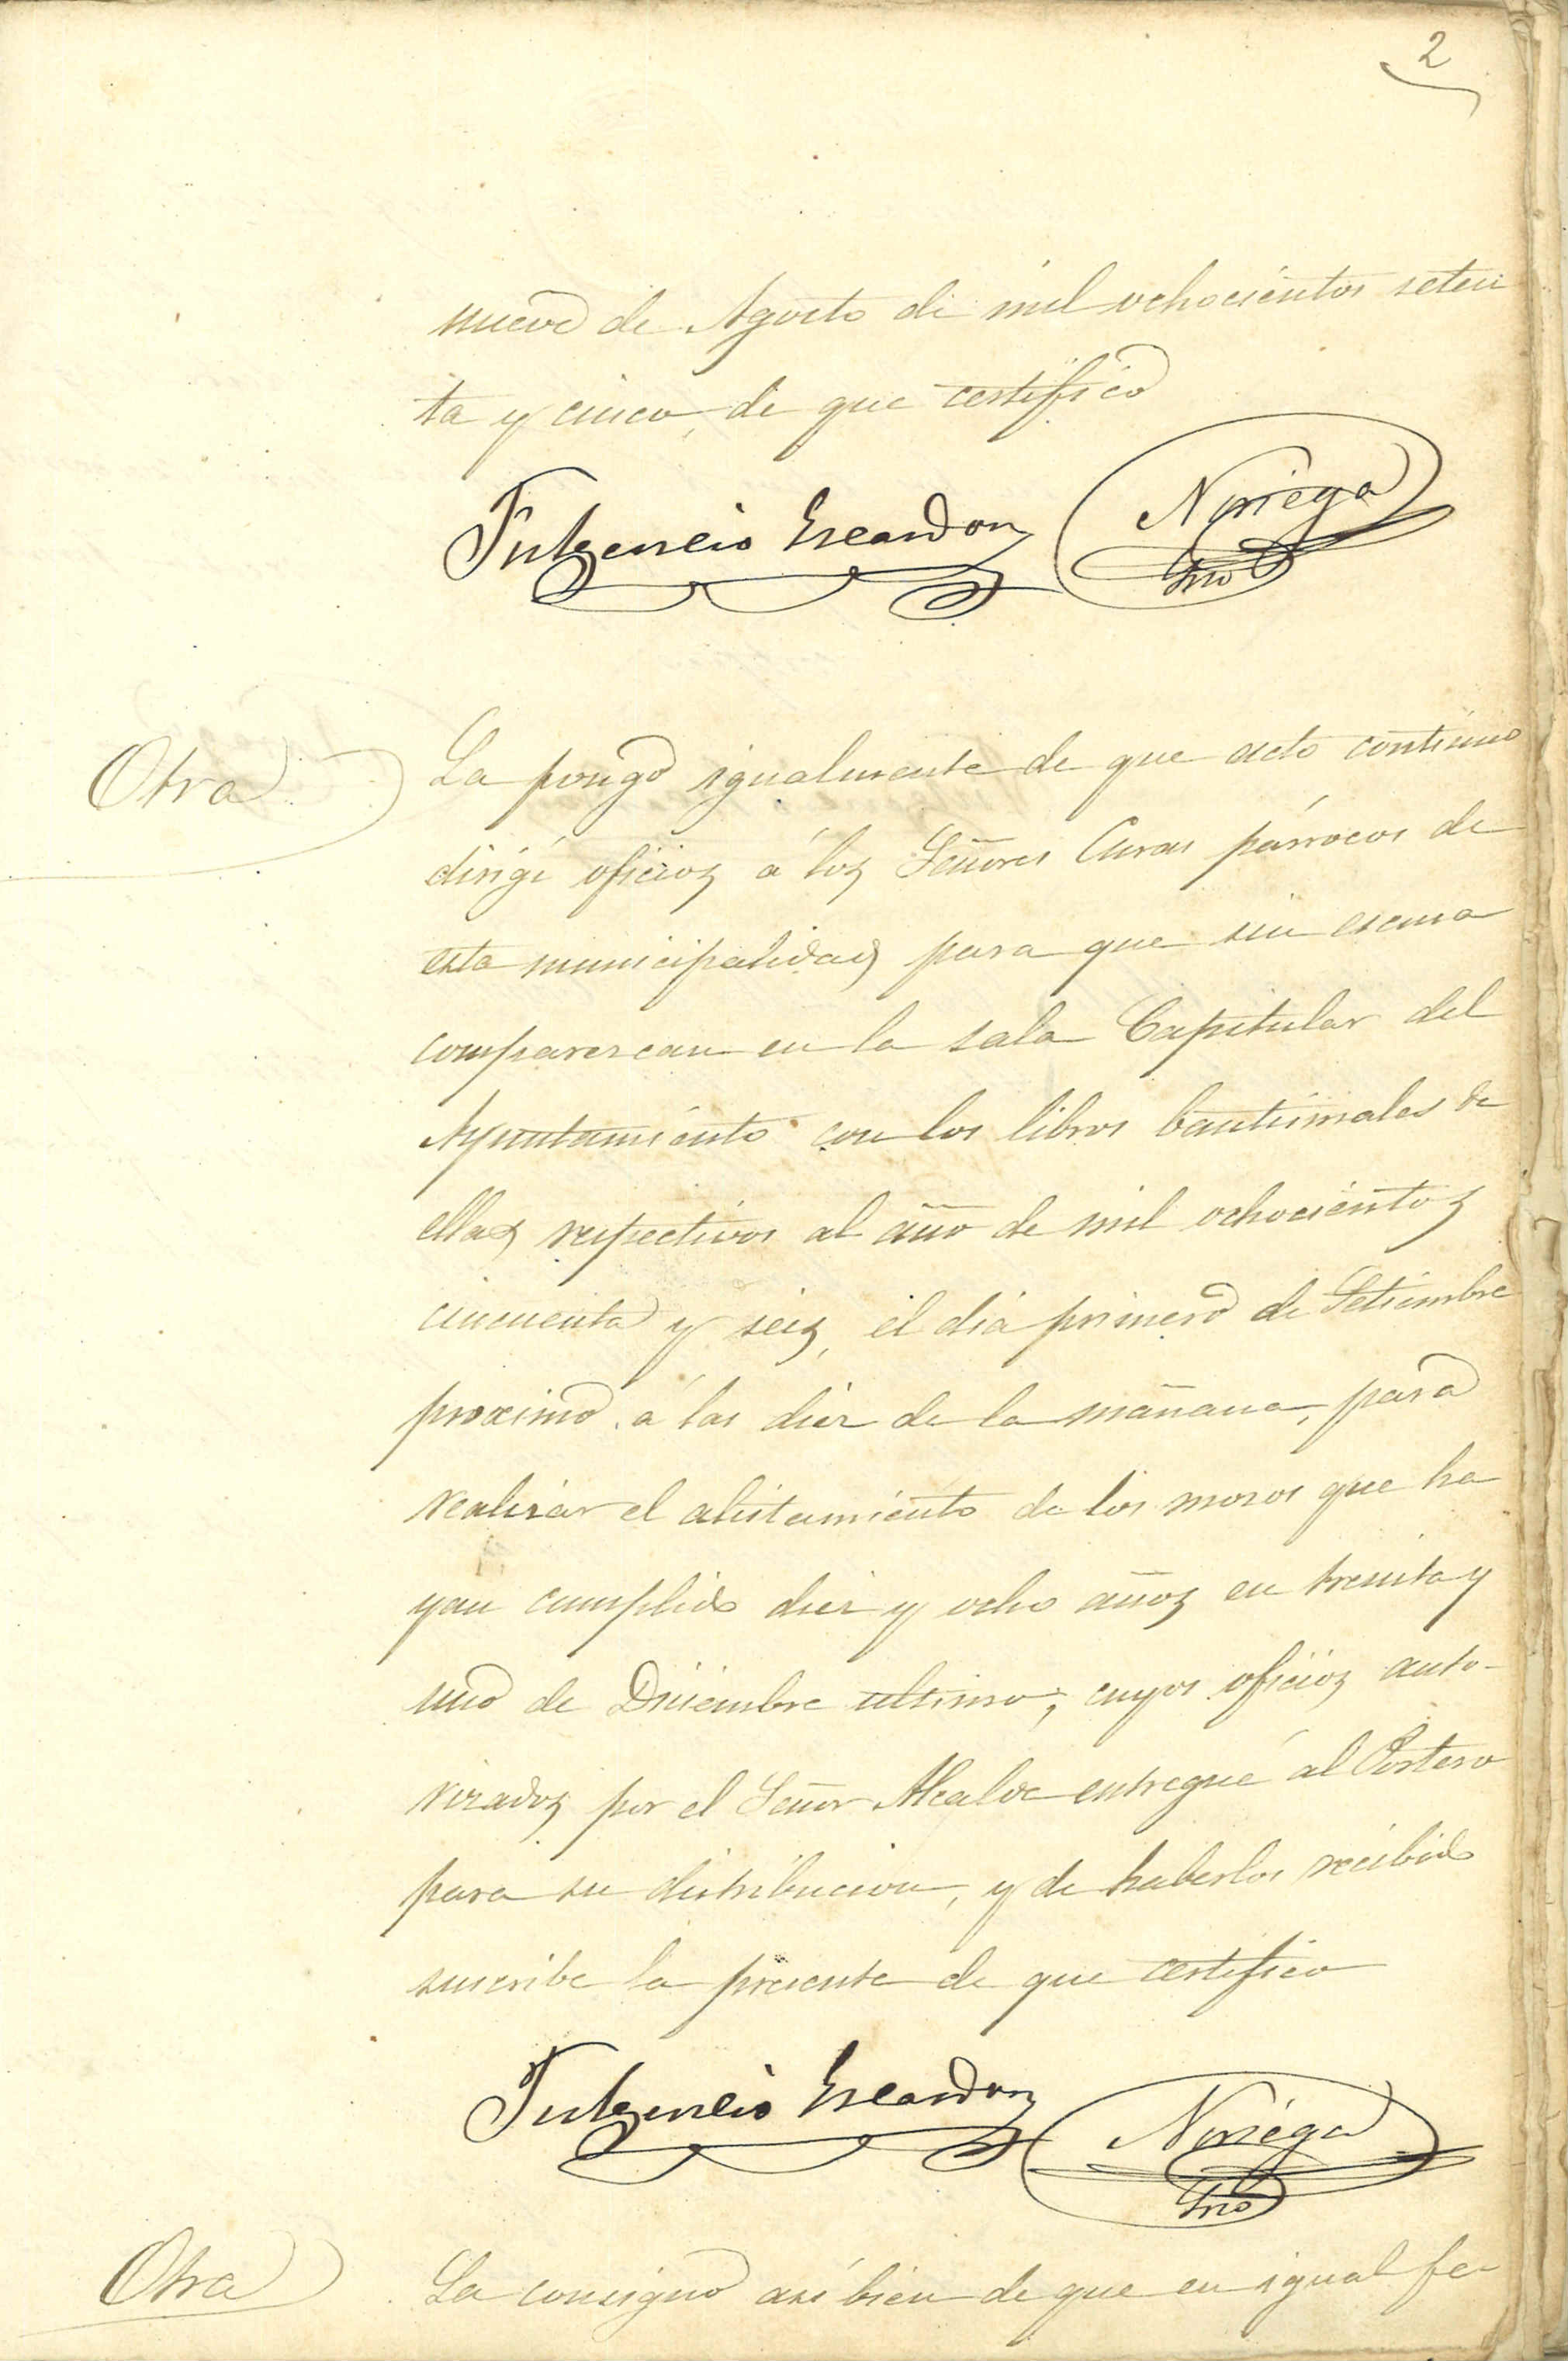 2
nueve de Agosto de mil ochocientos seten
ta y cinco, de que certifico
Fulgencio Escandon Noriega
Srio
Otra La pongo igualmente de que acto continuo
dirigí oficios á los Señores Curas párrocos de
esta municipalidad para que sin escusa
comparezcan en la sala Capitular del
Ayuntamiento con los libros bautismales de
ellas respectivos al año de mil ochocientos
cincuenta y seis, el dia primero de Setiembre
proximo á las diez de la mañana, para
realizar el alistamiento de los mozos que ha
yan cumplido diez y ocho años en treinta y
uno de Diciembre ultimo; cuyos oficios auto-
rizados por el Señor Alcalde entregué al Portero
para su distribucion, y de haberlos recibido
suscribe la presente de que certifico
Fulgencio Escandon Noriega
Srio
Otra La consigno asi bien de que en igual fe-